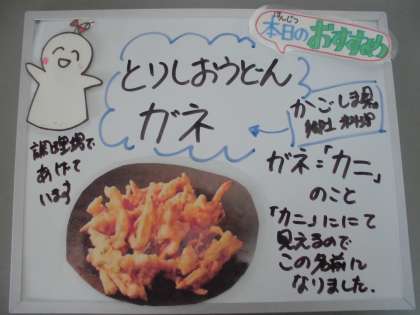 ほんじつ
本日のおすすめ
とりしおうどーん
ガネ
かごしま県
郷土料理
調理場で
あげて
います
ガネ=「カニ」
のこと
「カニ」ににて
見えるので
この名前に
なりました.